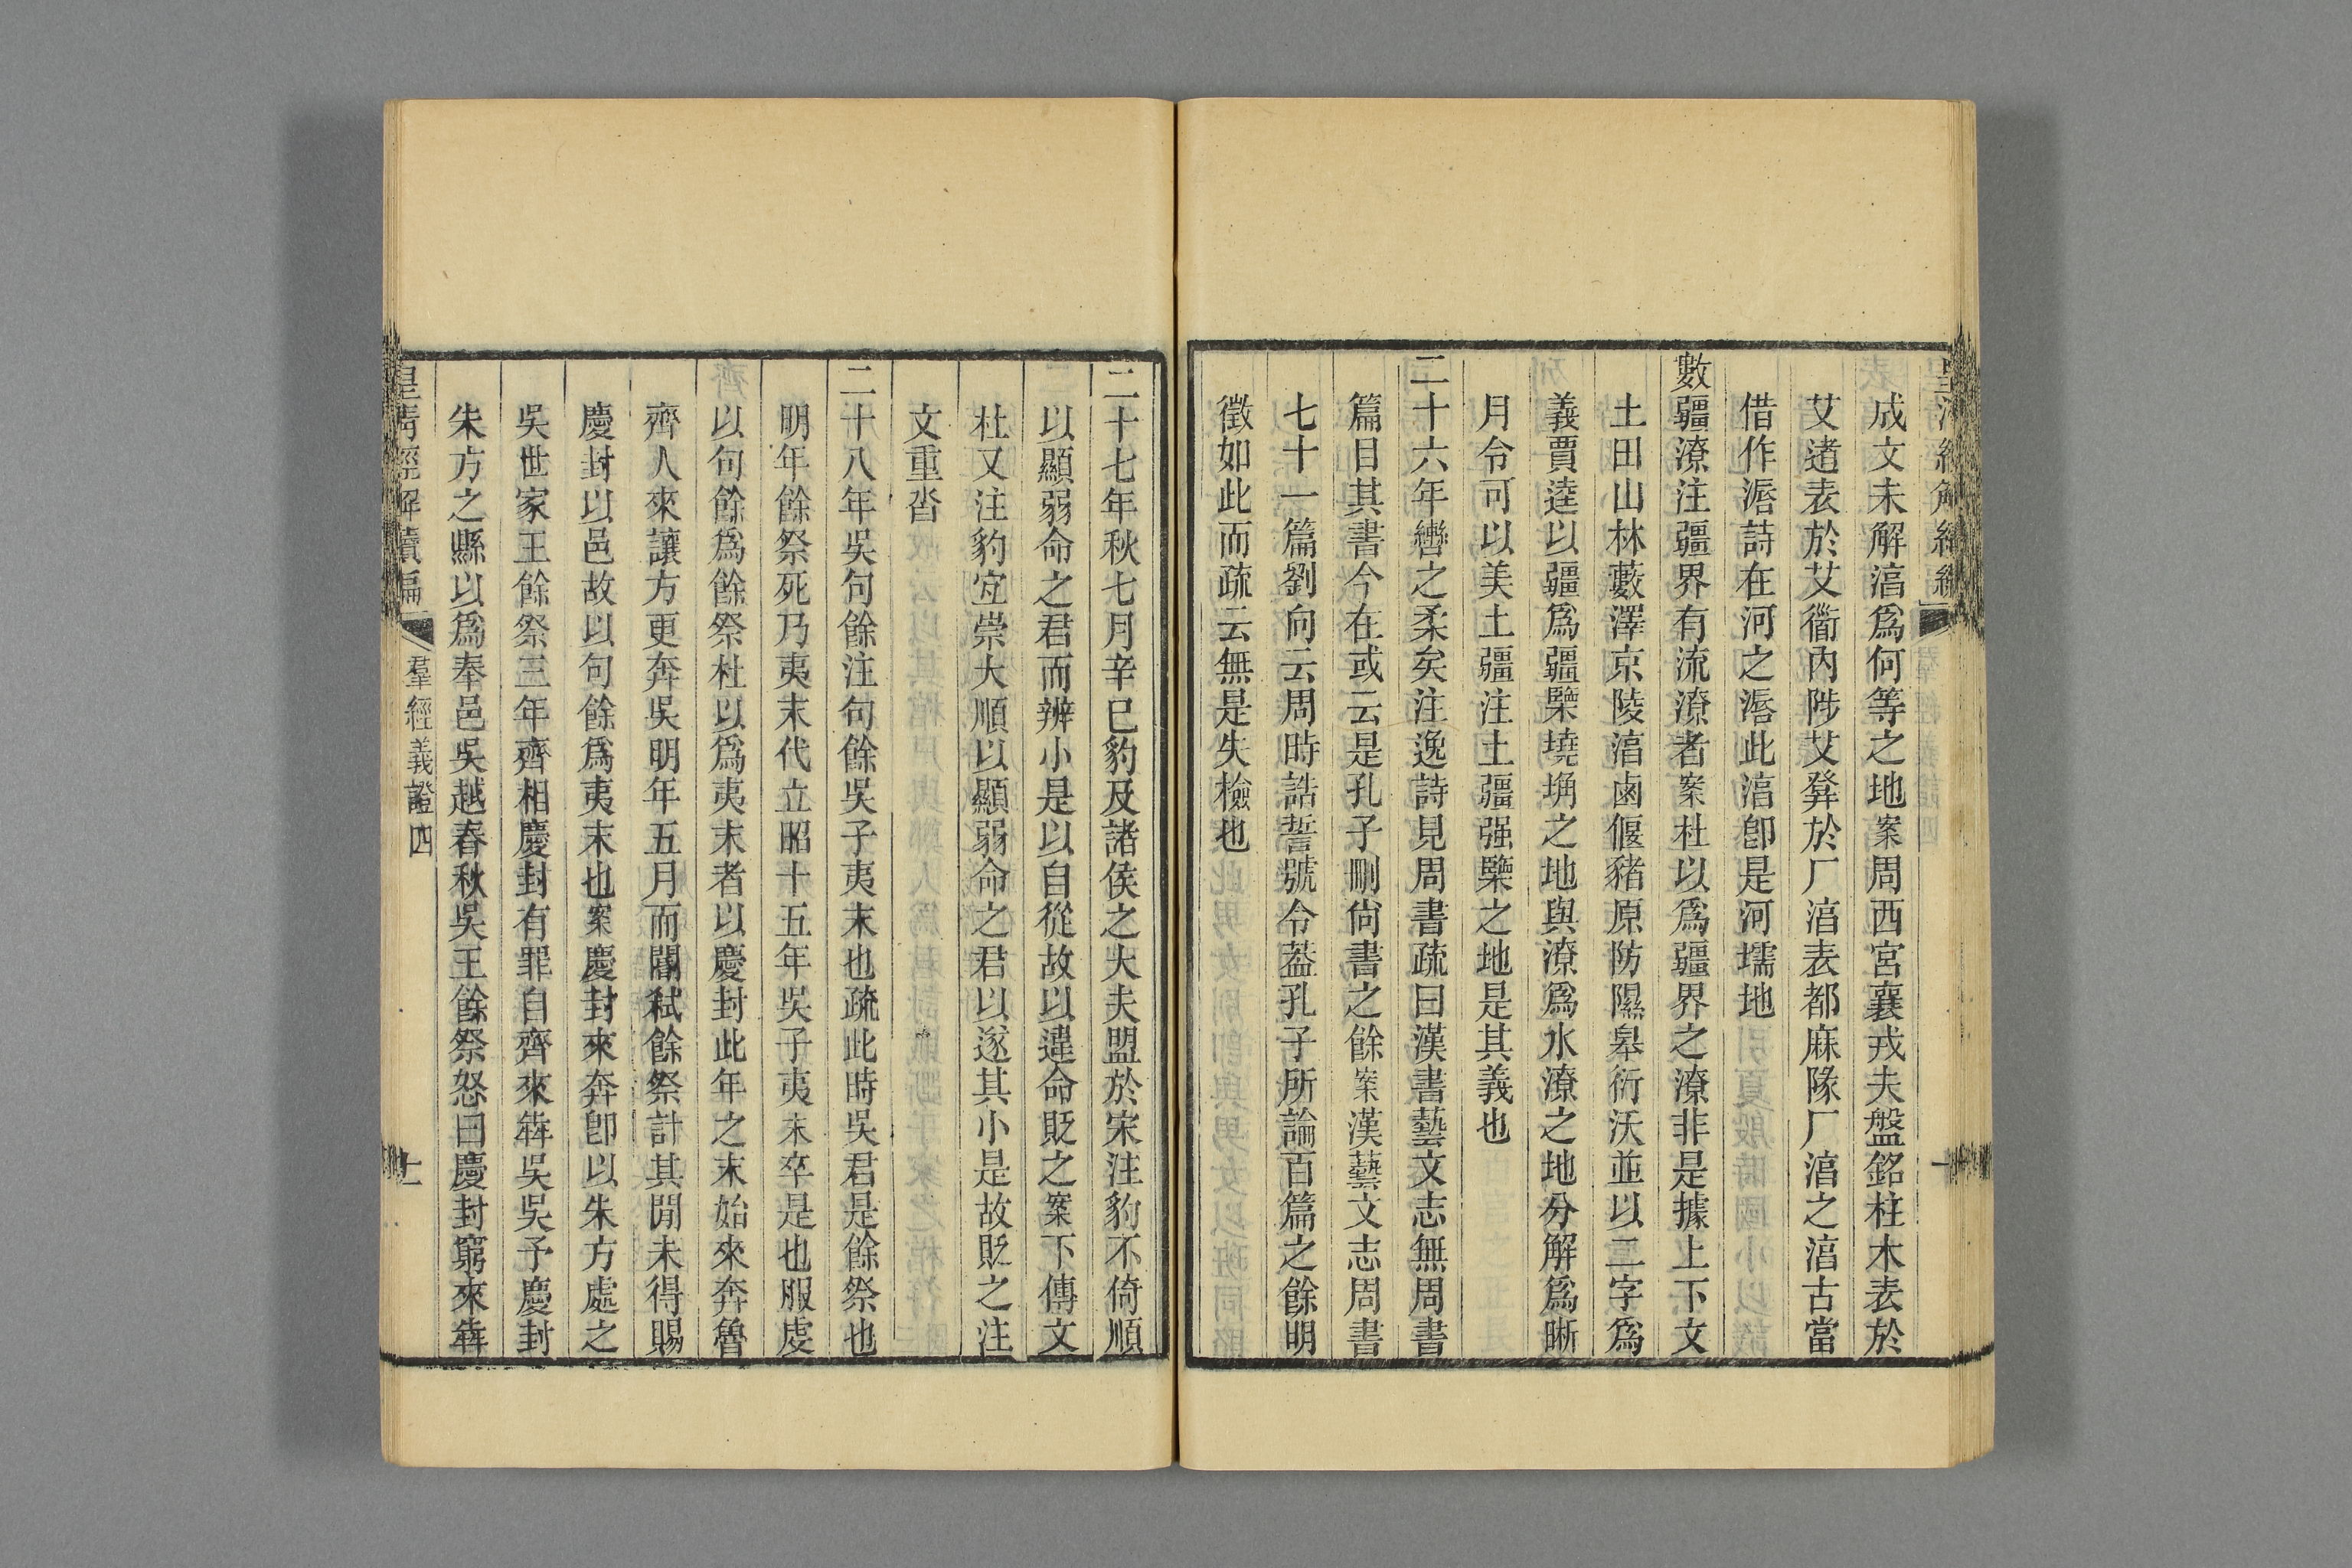 成文未解湻爲何等之地案周西宮襄戎夫盤銘柱木表於
艾逨表於艾衟內陟艾登於厂湻表都麻隊厂湻之湻古當
借作漘詩在河之漘此湻卽是河壖地
數疆潦注疆界有流潦者案杜以爲疆界之潦非是據上下文
土田山林藪澤京陵湻鹵偃豬原防隰皋衍沃並以二字爲
義賈逵以疆爲疆㯺墝埆之地與潦爲水潦之地分解爲晰
月令可以美土疆注土疆强㯺之地是其義也
二十六年轡之柔矣注逸詩見周書疏曰漢書藝文志無周書
篇目其書今在或云是孔子刪尙書之餘案漢藝文志周書
七十一篇劉向云周時誥誓號令葢孔子所論百篇之餘明
徵如此而疏云無是失檢也
二十七年秋七月辛巳豹及諸侯之大夫盟於宋注豹不倚順
以顯弱命之君而辨小是以自從故以違命貶之案下傳文
杜又注豹宐崇大順以顯弱命之君以遂其小是故貶之注
文重沓
二十八年吳句餘注句餘吳子夷末也疏此時吳君是餘祭也
明年餘祭死乃夷末代立昭十五年吳子夷末卒是也服虔
以句餘爲餘祭杜以爲夷末者以慶封此年之末始來奔魯
齊人來讓方更奔吳明年五月而閽弒餘祭計其閒未得賜
慶封以邑故以句餘爲夷末也案慶封來奔卽以朱方處之
吳世家王餘祭三年齊相慶封有罪自齊來犇吳吳予慶封
朱方之縣以爲奉邑吳越春秋吳王餘祭怒曰慶封窮來犇
皇淸經解續編
羣經義證四